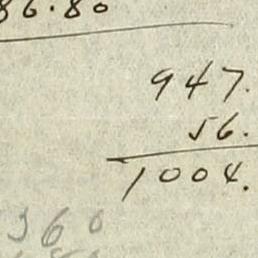 86.80
947.
56.
1004.
360